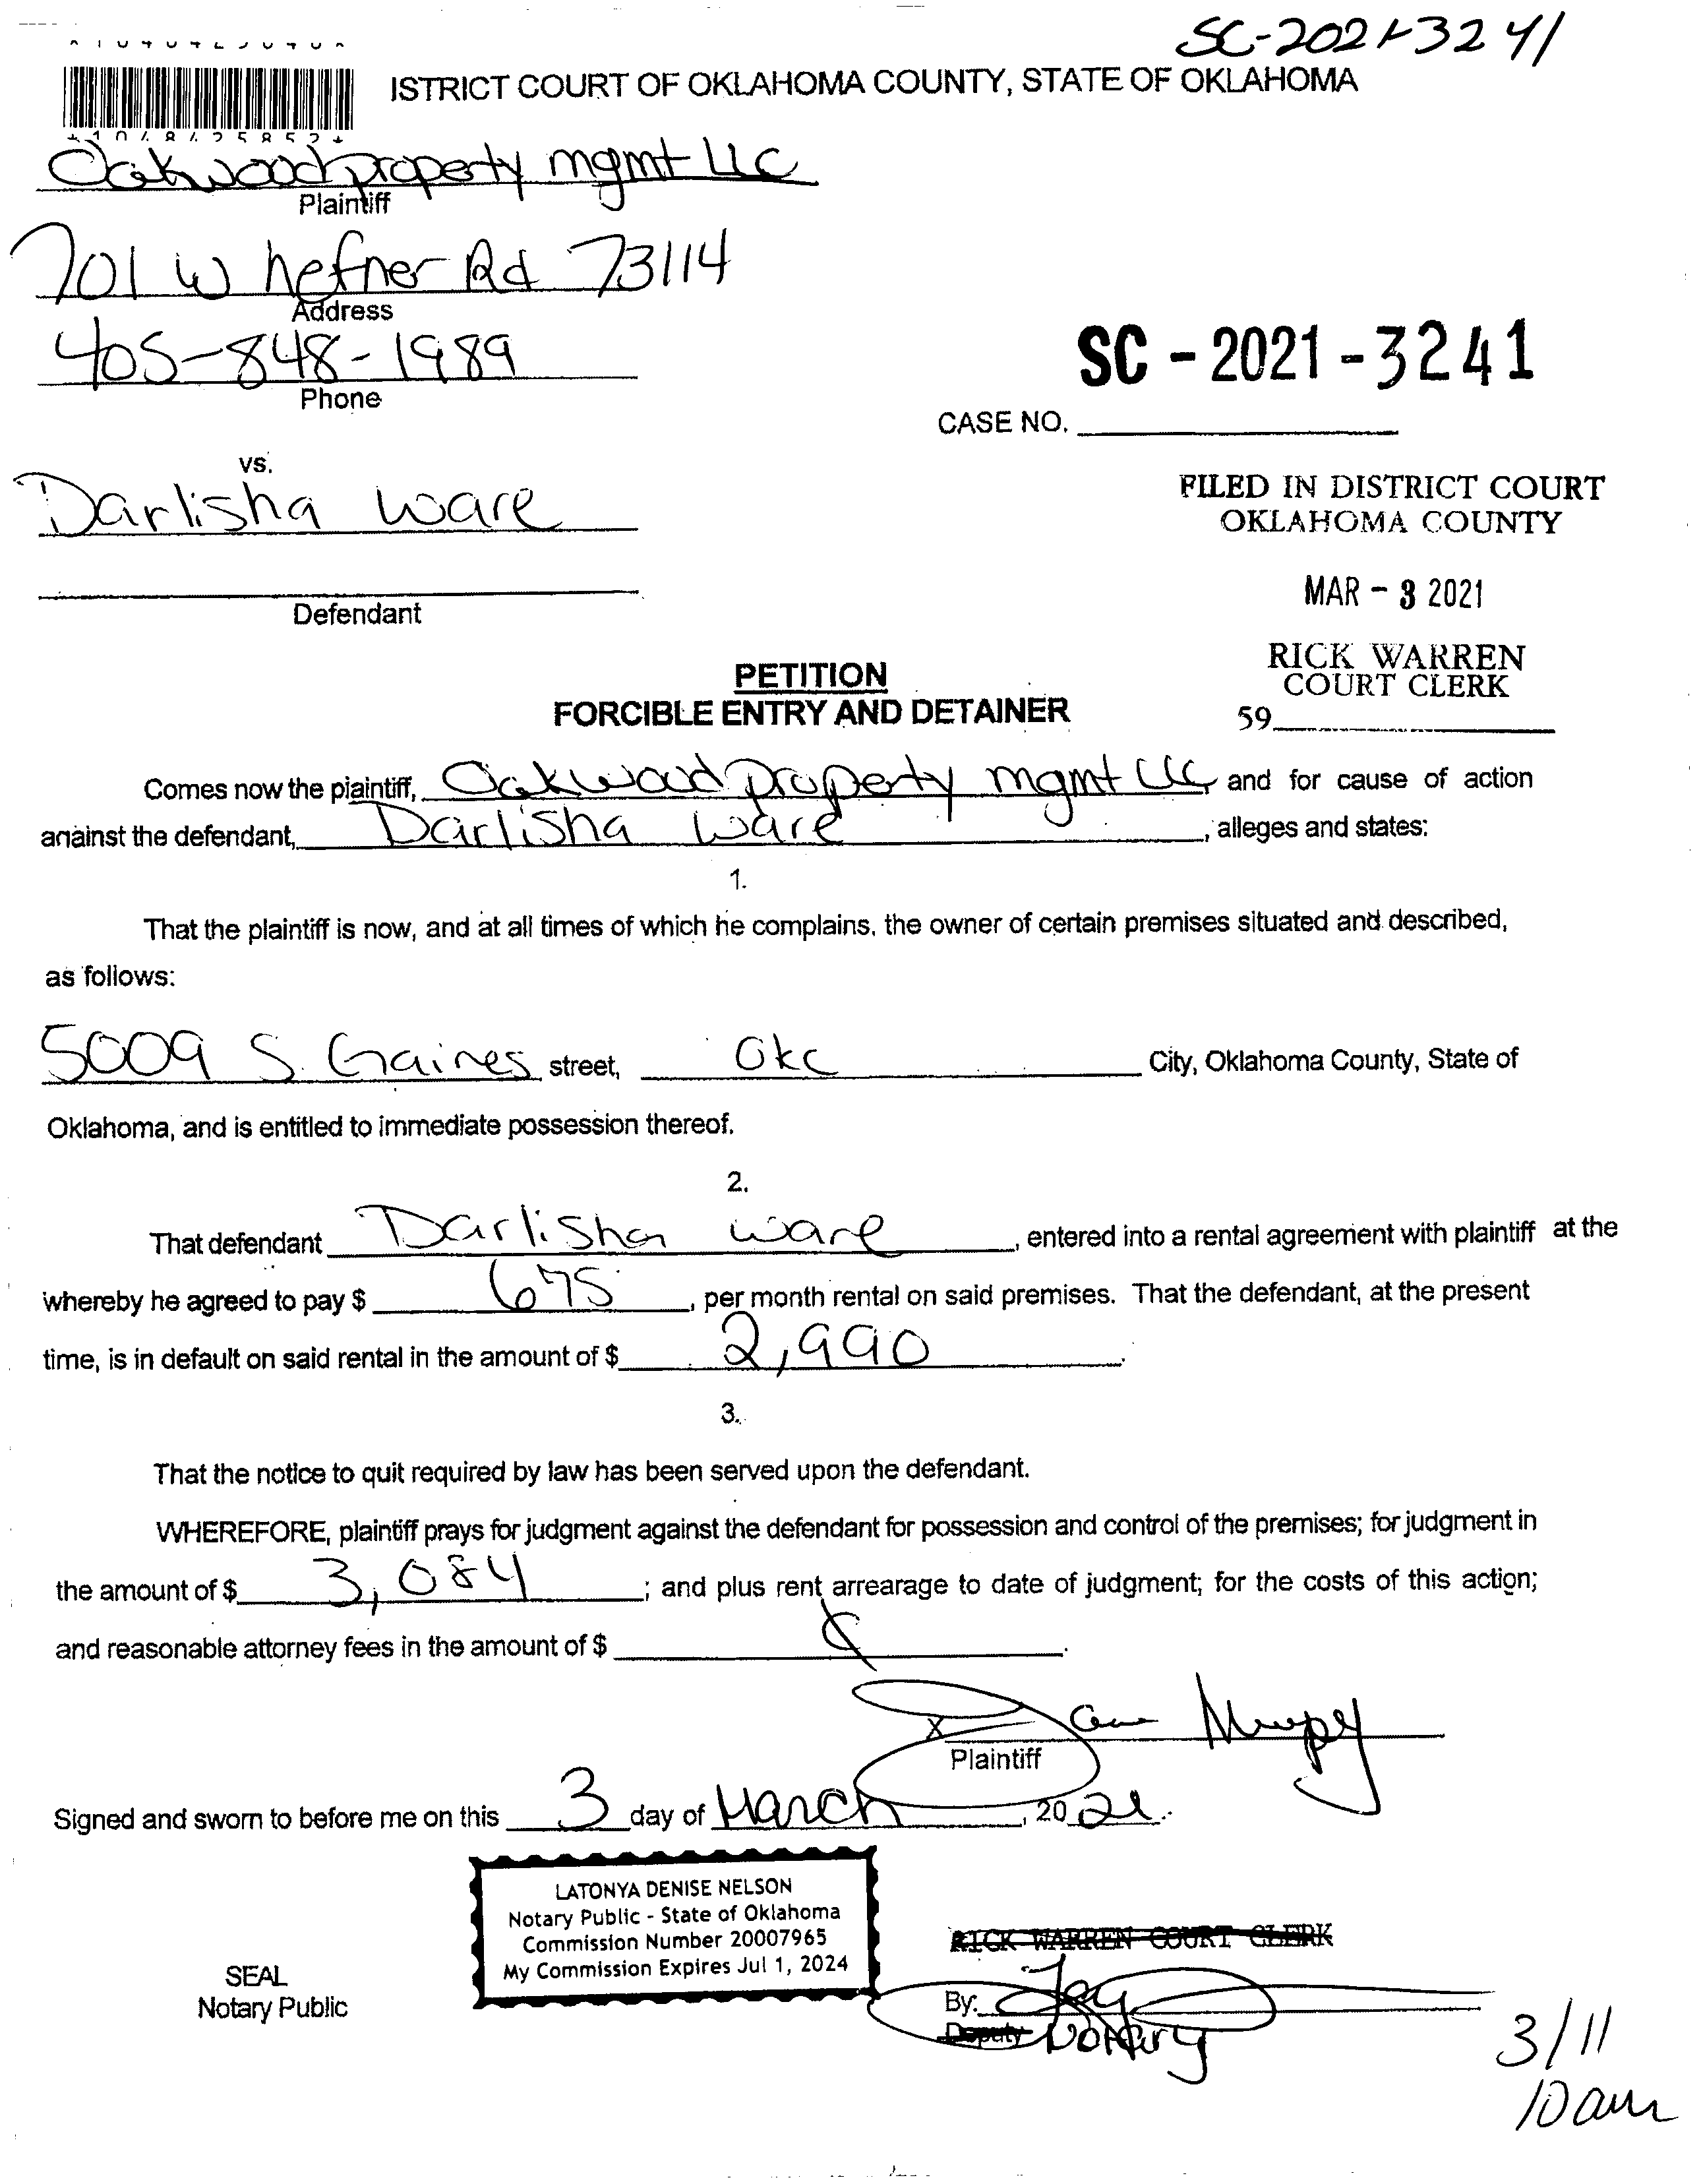 SC-2021-3241
ISTRICT COURT OF OKLAHOMA COUNTY, STATE OF OKLAHOMA
Oakwood property mgmt LLC
Plaintiff
701 W hefner Rd 73114
Address
405-848-1989
Phone
SC - 2021 - 3241
CASE NO.
vs.
Darlisha Ware
Defendant
FILED IN DISTRICT COURT
OKLAHOMA COUNTY
MAR - 3 2021
RICK WARREN
COURT CLERK
59
PETITION
FORCIBLE ENTRY AND DETAINER
Comes now the plaintiff, Oakwood property mgmt LLC and for cause of action
against the defendant, Darlisha Ware, alleges and states:
1.
That the plaintiff is now, and at all times of which he complains, the owner of certain premises situated and described,
as follows:
5009 S. Gaines street, Okc City, Oklahoma County, State of
Oklahoma, and is entitled to immediate possession thereof.
2.
That defendant Darlisha Ware, entered into a rental agreement with plaintiff at the
whereby he agreed to pay $ 675, per month rental on said premises. That the defendant, at the present
time, is in default on said rental in the amount of $ 2,990.
3.
That the notice to quit required by law has been served upon the defendant.
WHEREFORE, plaintiff prays for judgment against the defendant for possession and control of the premises; for judgment in
the amount of $ 3,084; and plus rent arrearage to date of judgment; for the costs of this action;
and reasonable attorney fees in the amount of $
X
Plaintiff
Signed and sworn to before me on this 3 day of March, 2021.
LATONYA DENISE NELSON
Notary Public - State of Oklahoma
Commission Number 20007965
My Commission Expires Jul 1, 2024
SEAL
Notary Public
RICK WARREN COURT CLERK
By:
Deputy Notary
3/11
10 am